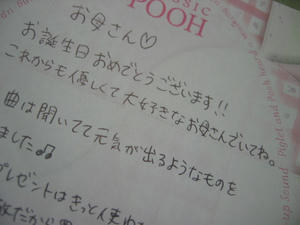 SSIC
POOH
お母さん♡
お誕生日おめでとうございます!!
これからも優しくて大好きなお母さんでいてね。
曲は聞いてて元気が出るようなものを
ました♫
プレゼントはきっと使え
Piglet and Pooh
up Sound